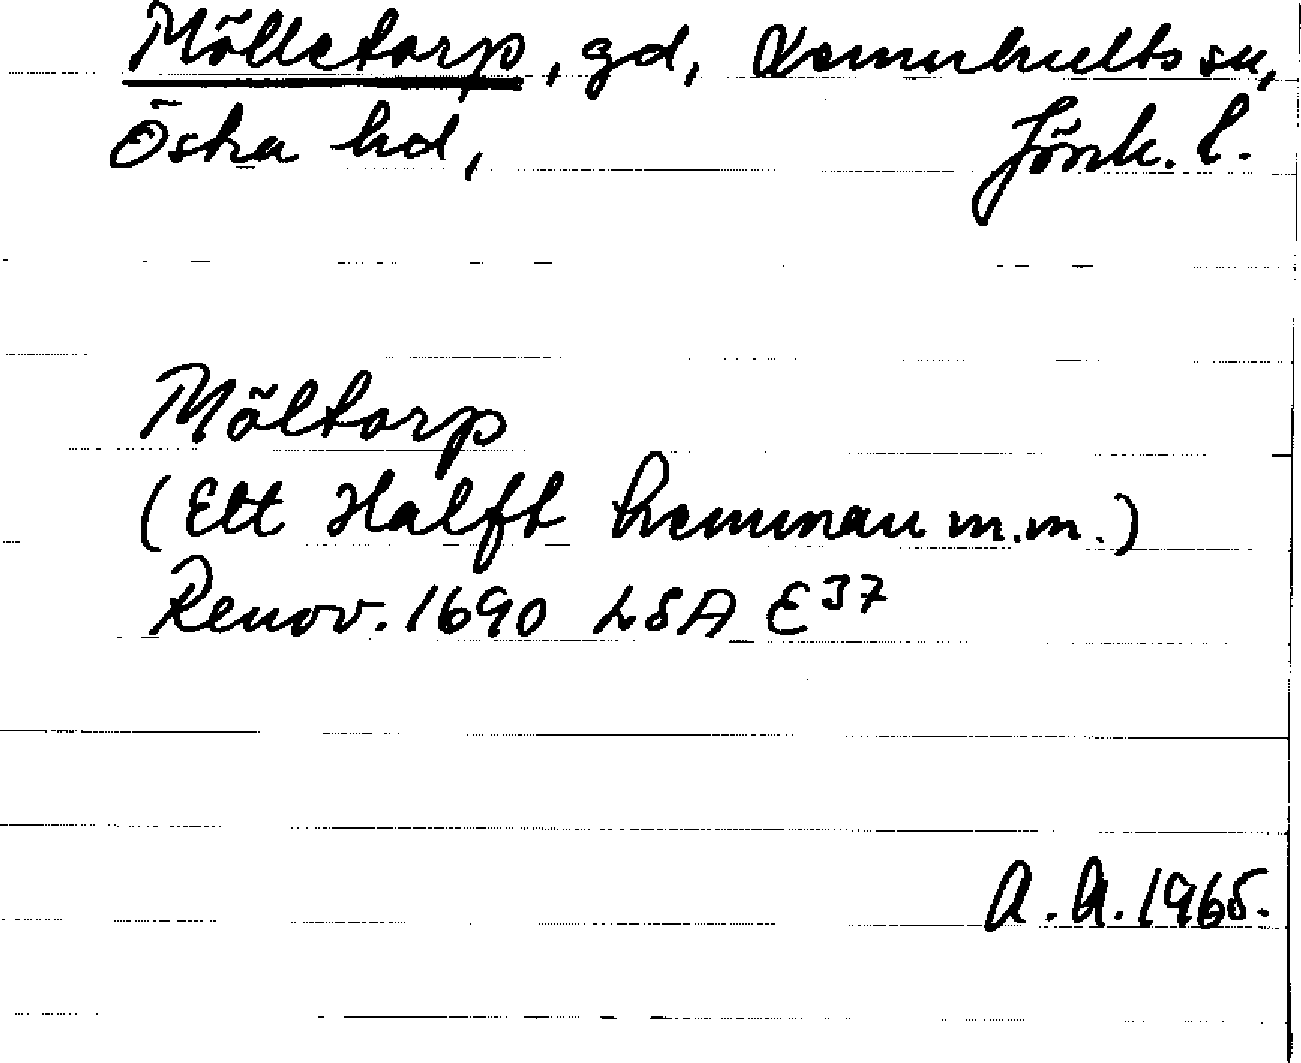 Mölletorp, gd, Lemnhults sn,
Östra hd, Jönk. l.
Möltorp
(Ett Halft hemman m.m.)
Renov. 1690 LSA E37
A.A. 1965.